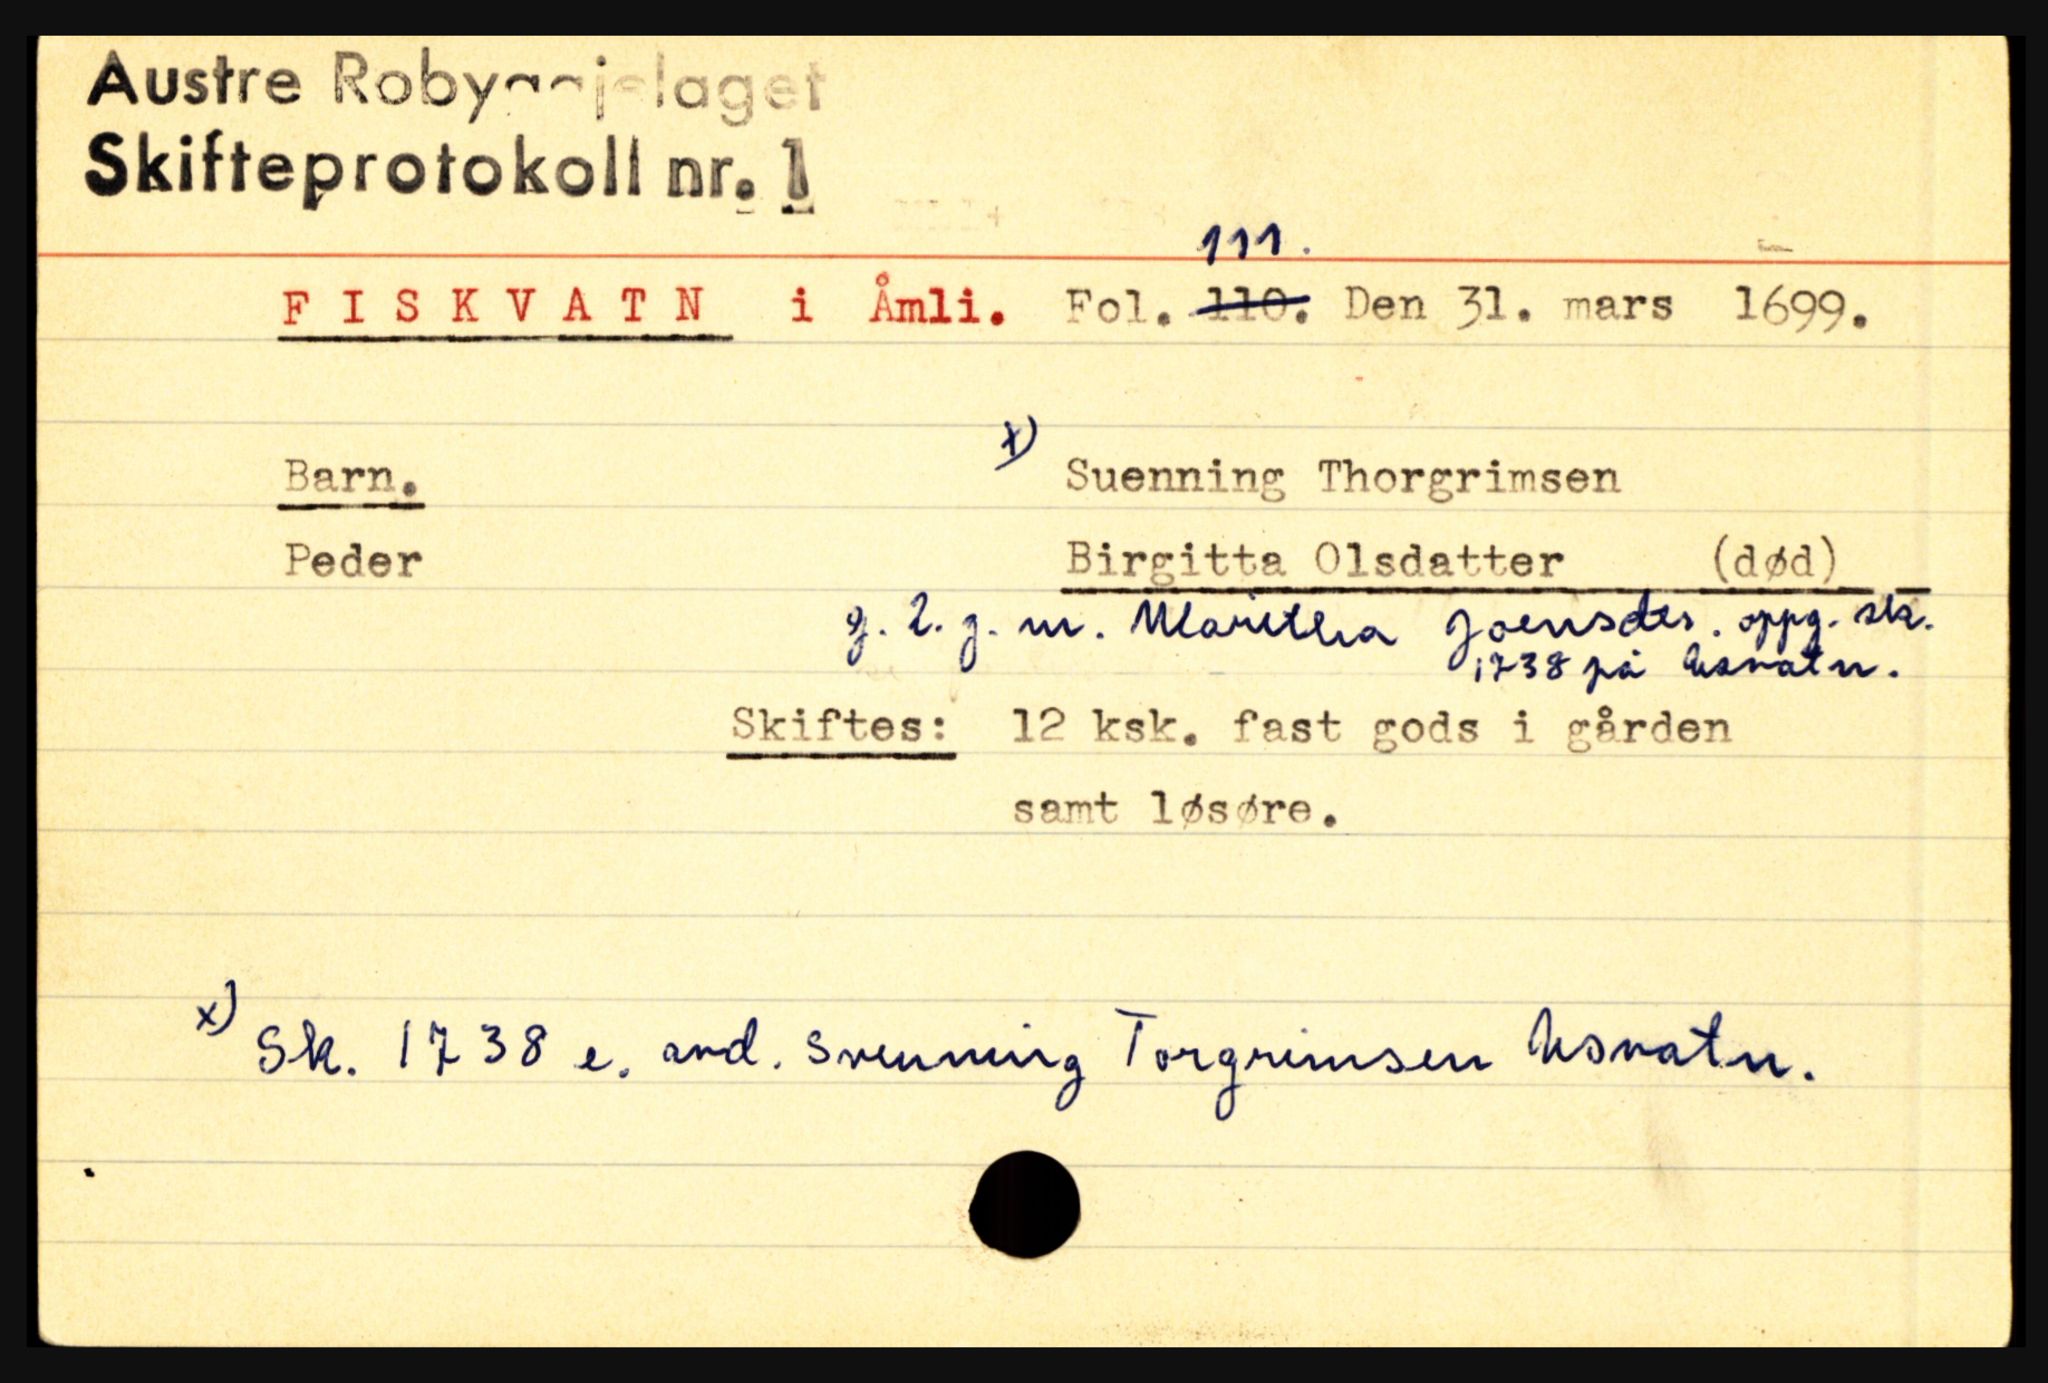 Austre Robyggjelaget
Skifteprotokoll nr. 1
111.
FISKVATN i Åmli. Fol. 110. Den 31. mars 1699.
Barn. x) Suenning Thorgrimsen
Peder Birgitta Olsdatter (død)
g. 2. g. m. Maritha Joensdtr. oppg. sk.
1738 på Usvatn.
Skiftes: 12 ksk. fast gods i gården
samt løsøre.
x) Sk. 1738 e. avd. Svenning Torgrimsen Usvatn.